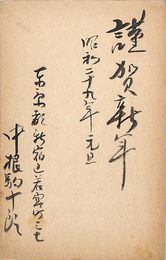 謹賀新年
昭和二十九年 元旦
東京都新宿区若宮町三七
中根駒十郎